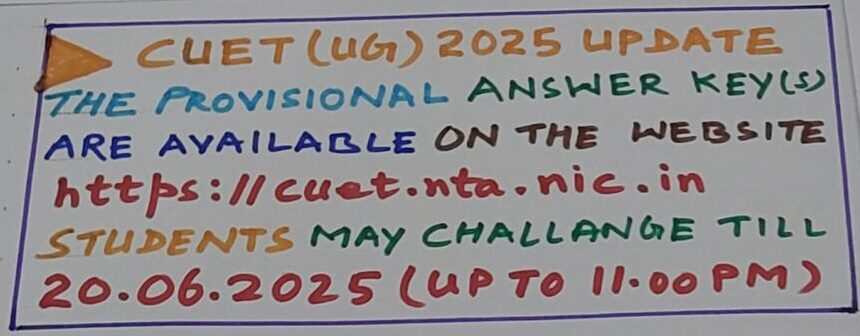 CUET (UG) 2025 UPDATE
THE PROVISIONAL ANSWER KEY(S)
ARE AVAILABLE ON THE WEBSITE
https://cuet.nta.nic.in
STUDENTS MAY CHALLANGE TILL
20.06.2025 (UP TO 11.00 PM)